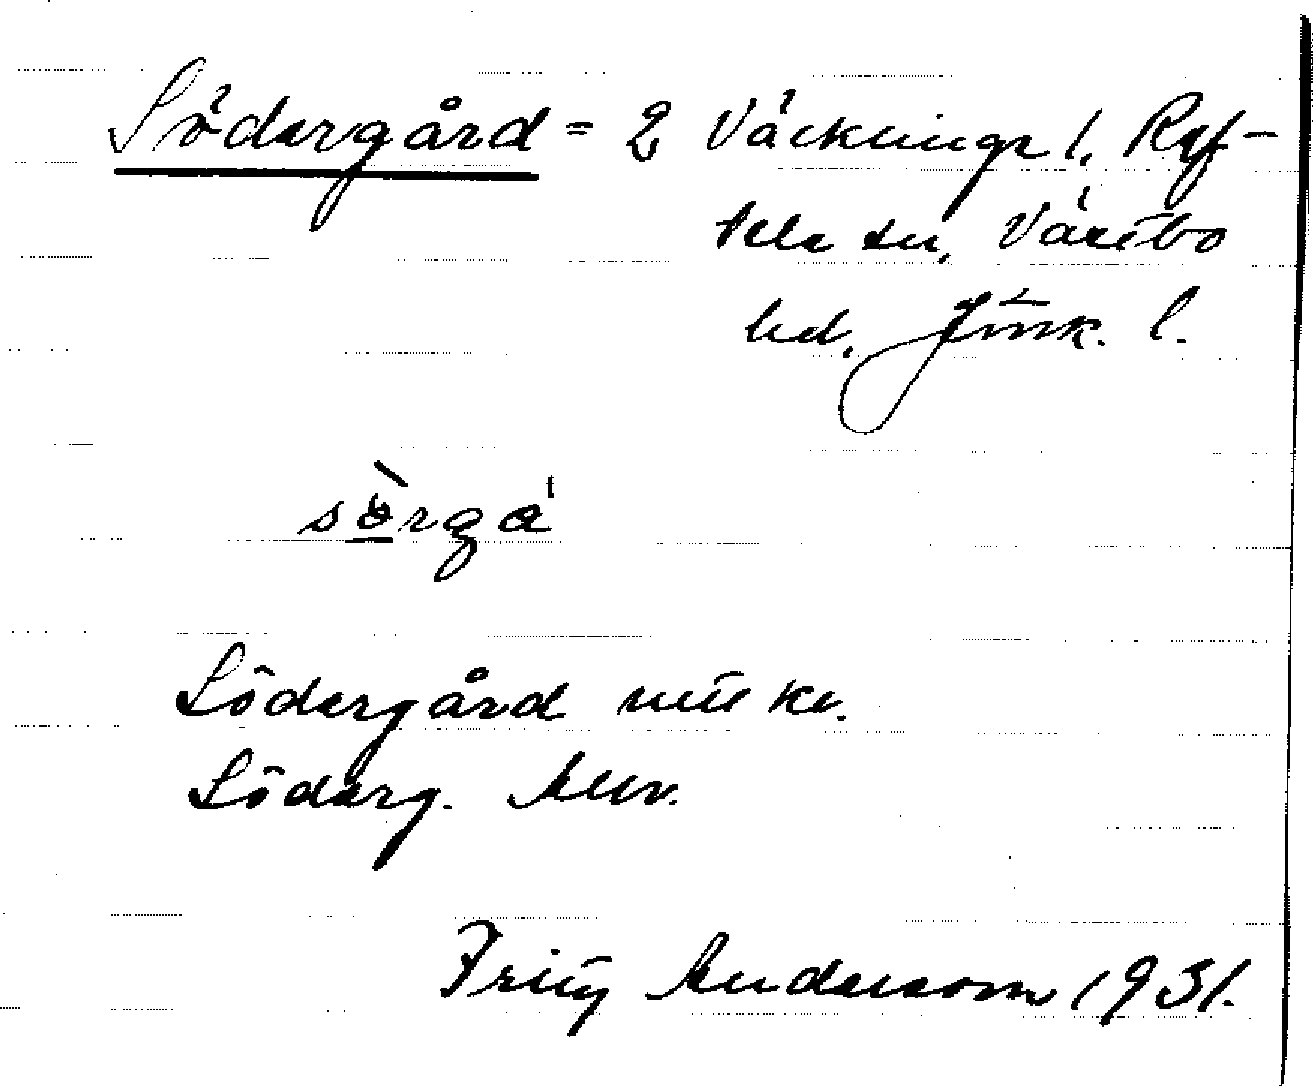 Södergård = 2 Väckinge l, Ref-
tele sn, Västbo
hd, Jönk. l.
sörgå
Södergård kv.
Söderg.
Fritz Andersson 1931.